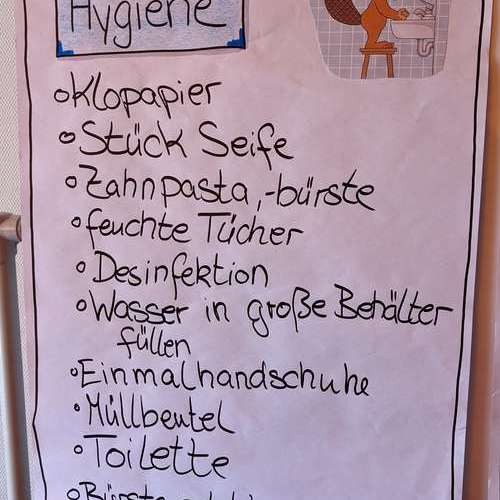 Hygiene
Klopapier
Stück Seife
Zahnpasta,-bürste
feuchte Tücher
Desinfektion
Wasser in große Behälter
füllen
Einmalhandschuhe
Müllbeutel
Toilette